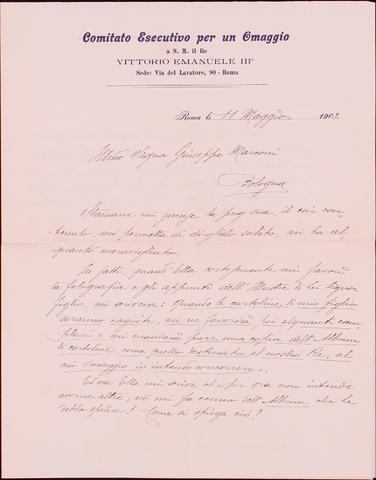 Comitato Esecutivo per un Omaggio
a S. M. il Re
VITTORIO EMANUELE III°
Sede: Via del Lavatore, 90 - Roma
Roma li 11 Maggio 1903.
Illmo Signor Giuseppe Marconi
Bologna
Stamane mi giunge la preg. sua, il cui con=
tenuto, mi permetta di dirglielo subito, mi ha al=
quanto meravigliato.
In fatti, quand'Ella cortesemente mi favorì
la fotografia e gli appunti dell'Illustre di Lei Signor
figlio, mi scriveva: Quando le cartoline di mio figlio
saranno eseguite, me ne favorirà poi alquanti esem=
plari e mi manderà pure una copia dell'Album
di cartoline come quello destinato al nostro Re, al
cui omaggio io intendo concorrere.
Ed ora Ella mi scrive che per ora non intende
averne altre, nè mi fa cenno dell'Album che Le
debbo spedire! Come si spiega ciò?